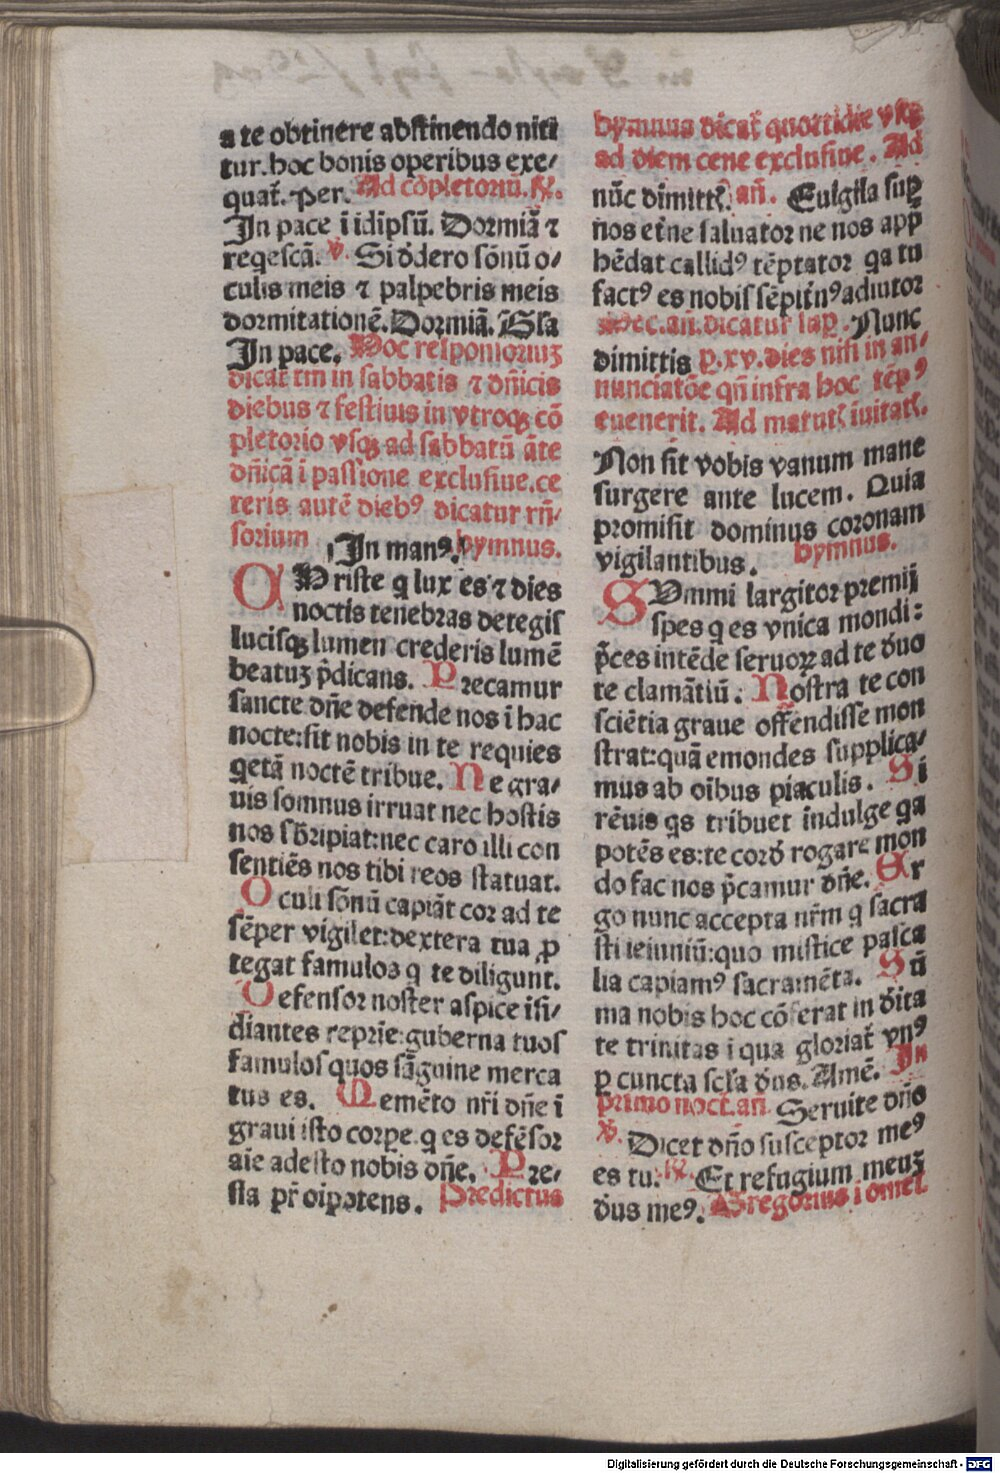 a te obtinere abstinendo niti
tur. hoc bonis operibus exe/
quat᷑. Per. Ad cōpletoriū. ℟.
In pace ī idīpsū. Dormiā ⁊
reqescā. ℣. Si ꝺ̄dero sōnū o/
culis meis ⁊ palpebris meis
dormitationē. Dormiā. Gl̄a
In pace. Hoc responsoriuꝫ
dicat᷑ tm̄ in sabbatis ⁊ dn̄icis
diebus ⁊ festiuis in vtroqꝫ cō
pletorio vsqꝫ ad sabbatū āte
dn̄icā ī passione exclusiue. ce
teris autē diebꝰ dicatur rn̄/
sorium In manꝰ. hymnus.
CHriste q lux es ⁊ dies
noctis tenebras detegis
lucisqꝫ lumen crederis lumē
beatuꝫ p̄dicans. Precamur
sancte dn̄e defende nos ī hac
nocte: sit nobis in te requies
qetā noctē tribue. Ne gra/
uis somnus irruat nec hostis
nos sb̄ripiat: nec caro illi con
sentiēs nos tibi reos statuat.
Oculi sōnū capiāt cor ad te
sēper vigilet: dextera tua ꝓ
tegat famulos q te diligunt.
Defensor noster aspice īsi/
diantes reprīe: guberna tuos
famulos quos sāguine merca
tus es. Memēto nr̄i dn̄e ī
graui isto corpe. q es defēsor
aīe adesto nobis dn̄e. Pre/
sta pr̄ oīpotens. Predictus
hymnus dicat᷑ quottidie vsqꝫ
ad diem cene exclusiue. Ad
nūc dimittꝭ. an̄. Euigila suꝑ
nos etīne saluator ne nos app̄
hēdat callidꝰ tēptator qa tu
factꝰ es nobis sēpit̄nꝰ adiutor
Hec. an̄. dicatur suꝑ. Nunc
dimittis ꝑ. xv. dies nisi in an/
nunciatōe qn̄ infra hoc tēpꝰ
euenerit. Ad matutꝭ īuitatꝭ.
Non sit vobis vanum mane
surgere ante lucem. Quia
promisit dominus coronam
vigilantibus. hymnus.
SVmmi largitor premij
spes q es vnica mondi:
p̄ces intēde seruoꝝ ad te ꝺ̄uo
te clamātiū: Nostra te con
sciētia graue offēndisse mon
strat: quā emondes supplica/
mus ab oībus piaculis. Si
rēuis qs tribuet indulge qa
potēs es: te corꝺ̄ rogare mon
do fac nos p̄camur dn̄e. Er
go nunc accepta nr̄m q sacra
sti ieiuniū: quo mistice pasca
lia capiamꝰ sacramēta. Sū
ma nobis hoc cōferat in ꝺ̄ita
te trinitas ī qua gloriat᷑ vnꝰ
ꝑ cuncta scl̄a ꝺ̄us. Amē. In
primo noct. an̄. Seruite dn̄o
℣. Dicet dn̄o susceptor meꝰ
es tu. ℟. Et refugium meuꝫ
ꝺ̄us meꝰ. Gregorius ī omel.
Digitalisierung gefördert durch die Deutsche Forschungsgemeinschaft - DFG